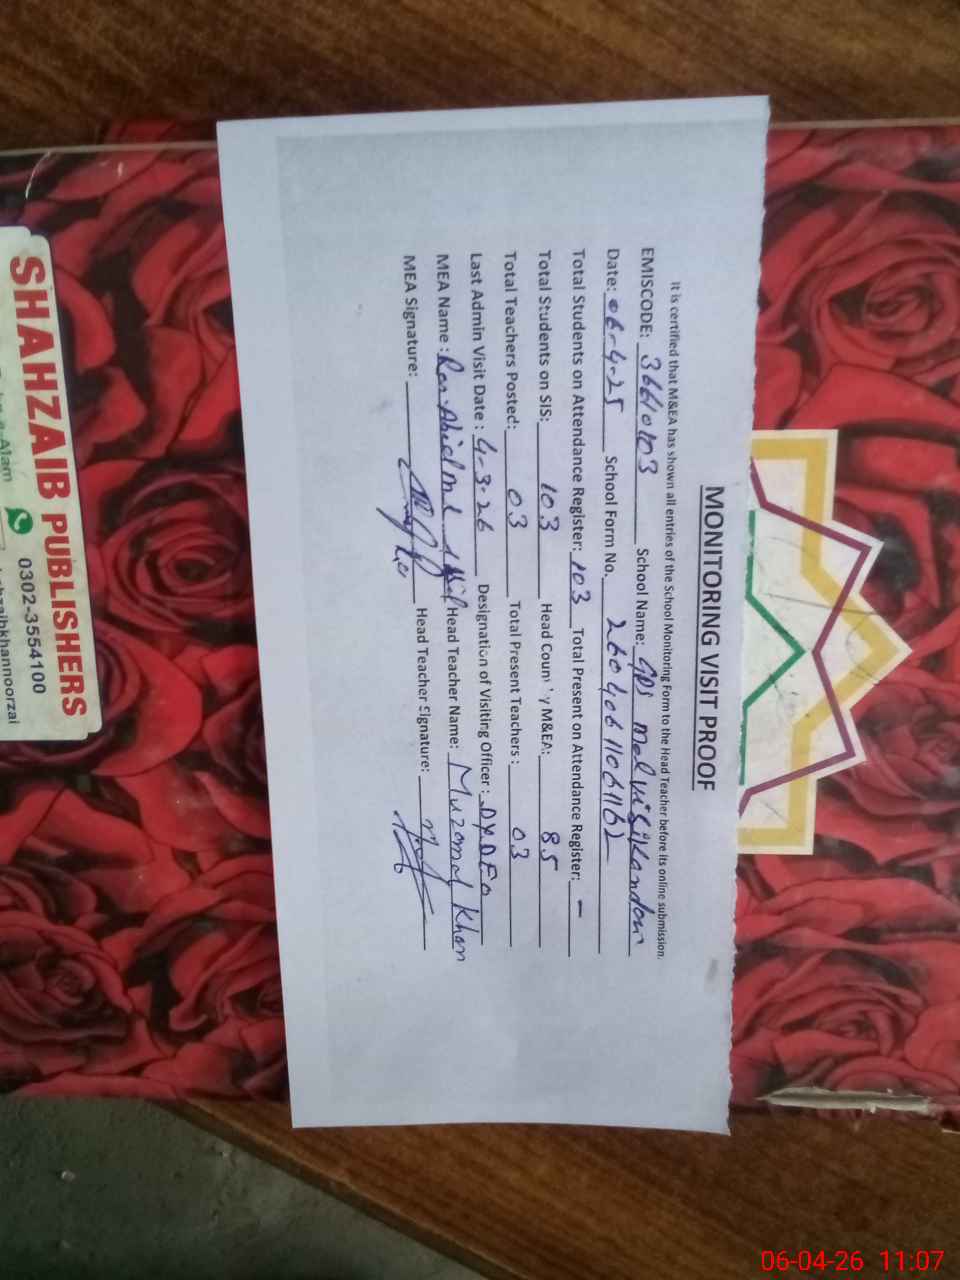 MONITORING VISIT PROOF
It is certified that M&EA has shown all entries of the School Monitoring Form to the Head Teacher before its online submission.
EMISCODE: 36610103 School Name: GPS Malvi Sikandar
Date: 06-4-25 School Form No. 26040611061162
Total Students on Attendance Register: 103 Total Present on Attendance Register: -
Total Students on SIS: 103 Head Count by M&EA: 85
Total Teachers Posted: 03 Total Present Teachers: 03
Last Admin Visit Date: 4-3-26 Designation of Visiting Officer: DYDEO
MEA Name: Head Teacher Name: Muzamal Khan
MEA Signature: Head Teacher Signature:
SHAHZAIB PUBLISHERS
0302-3554100
06-04-26 11:07